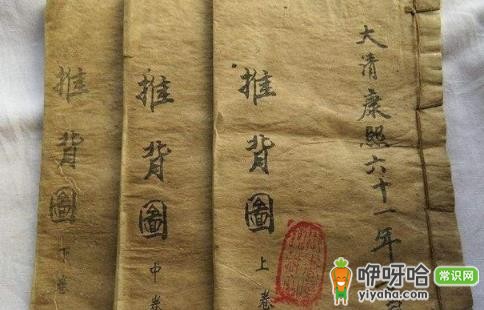 大清康熙六十一年
推背圖
上卷
推背圖
中卷
推背圖
下卷
咿呀哈 常识网
yiyaha.com